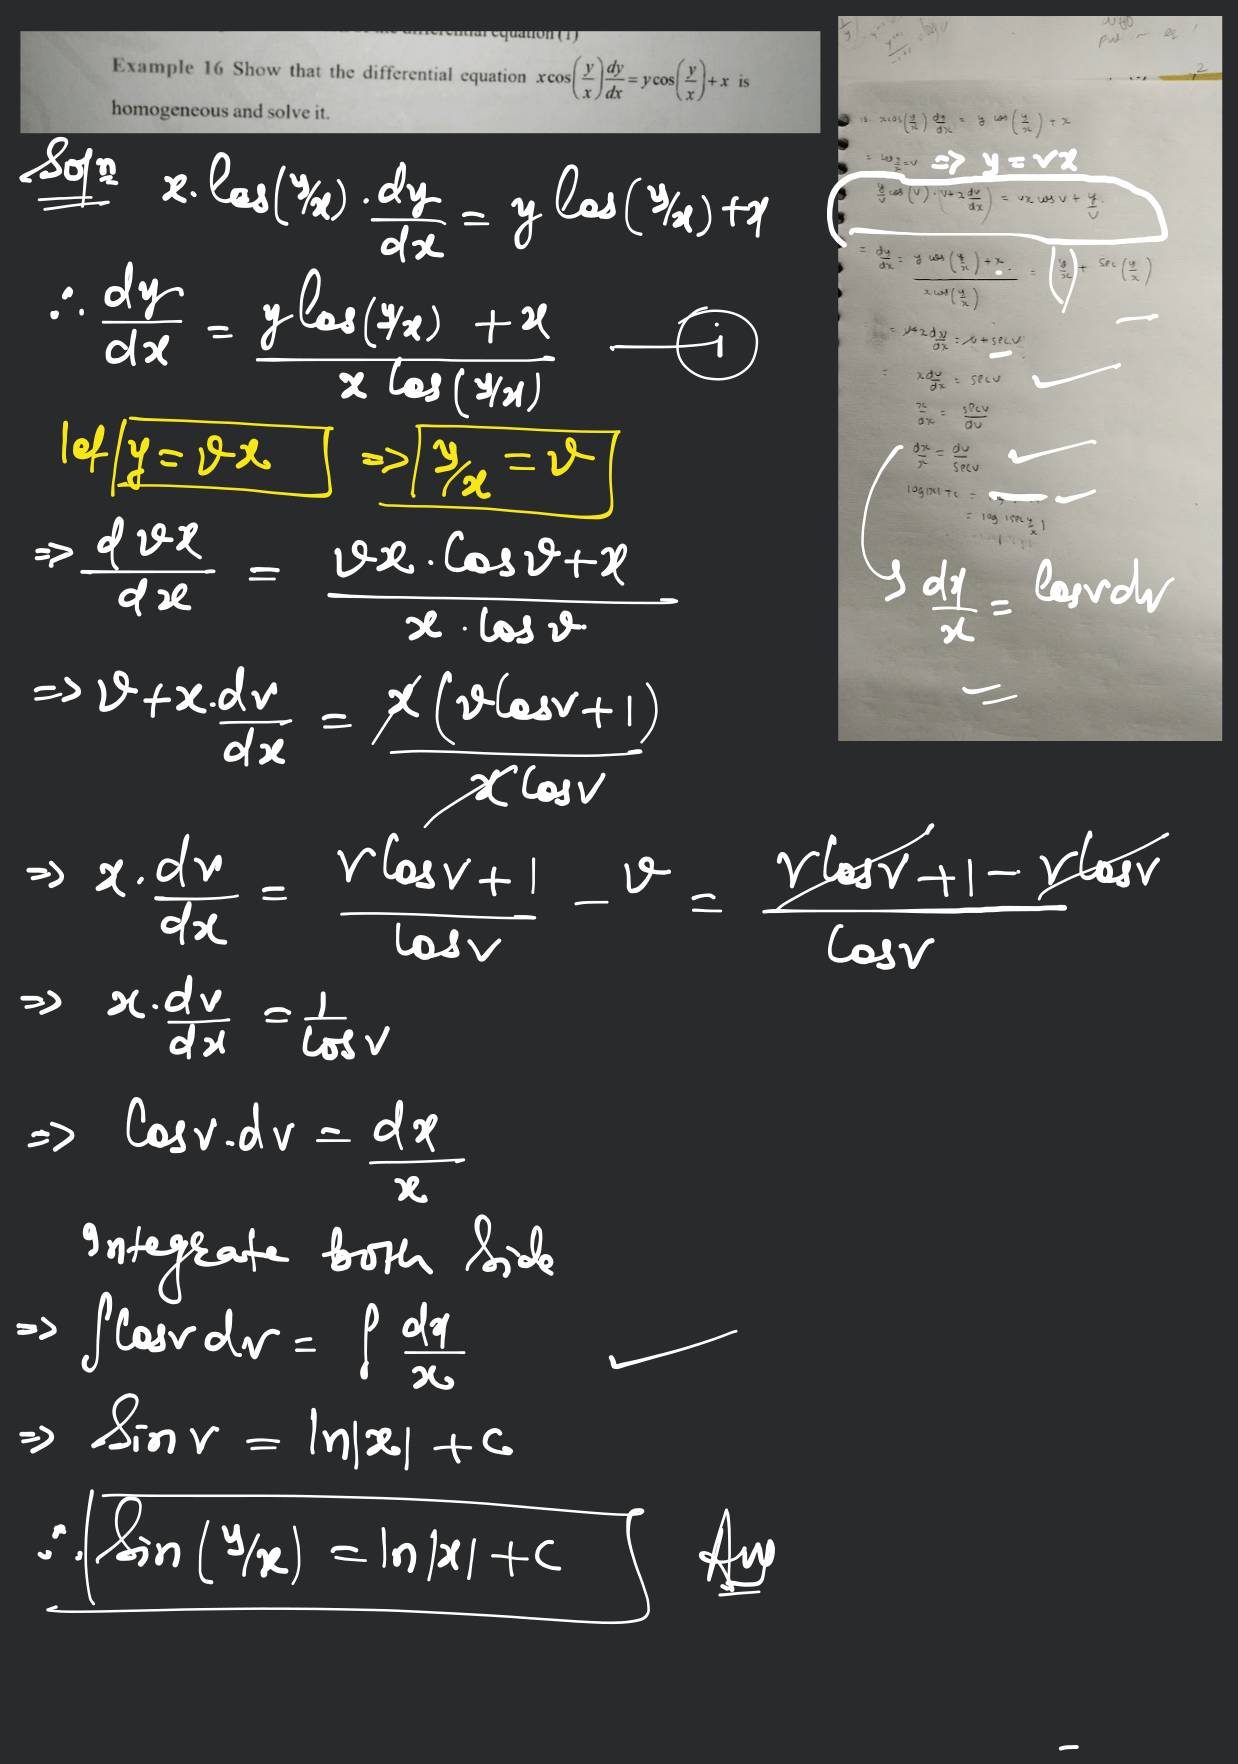 Example 16 Show that the differential equation x cos(y/x) dy/dx = y cos(y/x) + x is
homogeneous and solve it.
Soln x. Cos(y/x) . dy/dx = y Cos(y/x) + x
∴ dy/dx = y Cos(y/x) + x / x Cos(y/x) — i
let y = vx => y/x = v
=> dvx/dx = vx . Cos v + x / x . Cos v
=> v + x. dv/dx = x (v Cos v + 1) / x Cos v
=> x. dv/dx = v Cos v + 1 / Cos v - v = v Cos v + 1 - v Cos v / Cos v
=> x. dv/dx = 1 / Cos v
=> Cos v. dv = dx/x
Integrate both side
=> ∫ Cos v dv = ∫ dx/x
=> Sin v = ln|x| + c
∴ Sin (y/x) = ln|x| + c Ans
x cos(y/x) dy/dx = y cos(y/x) + x
=> y = vx
y/v cos(v) . (v + x dv/dx) = vx cos v + y/v
= dy/dx = y cos(y/x) + x / x cos(y/x) = y/x + sec(y/x)
= v + x dv/dx = v + sec v
= x dv/dx = sec v
x/dx = sec v/dv
dx/x = dv/sec v
log|x| + c =
= log |sec y/x|
dx/x = Cos v dv